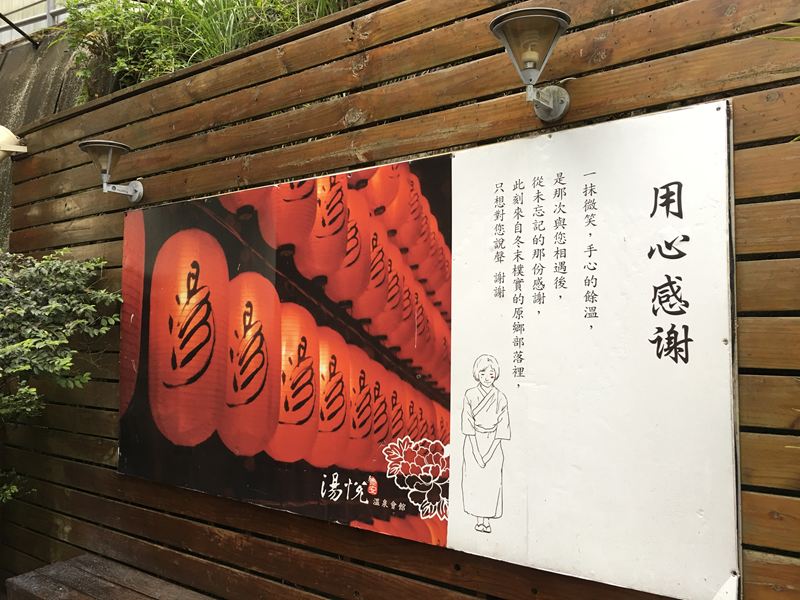 用心感謝
一抹微笑，手心的餘溫，
是那次與您相遇後，
從未忘記的那份感謝，
此刻來自冬末樸實的原鄉部落裡，
只想對您說聲 謝謝
湯
湯
湯
湯
湯
湯
湯悅
溫泉會館